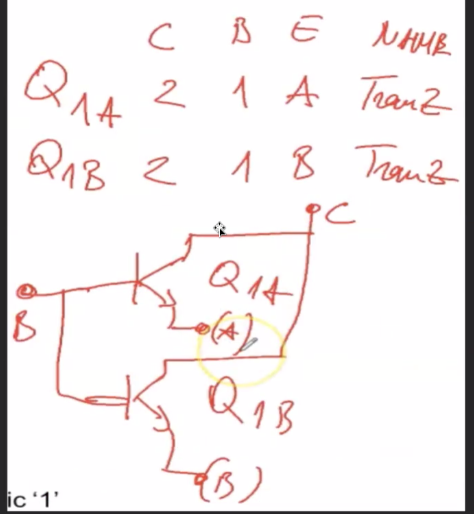 C B E NAME
Q1A 2 1 A TranZ
Q1B 2 1 B TranZ
C
Q1A
B
(A)
Q1B
(B)
ic ‘1’